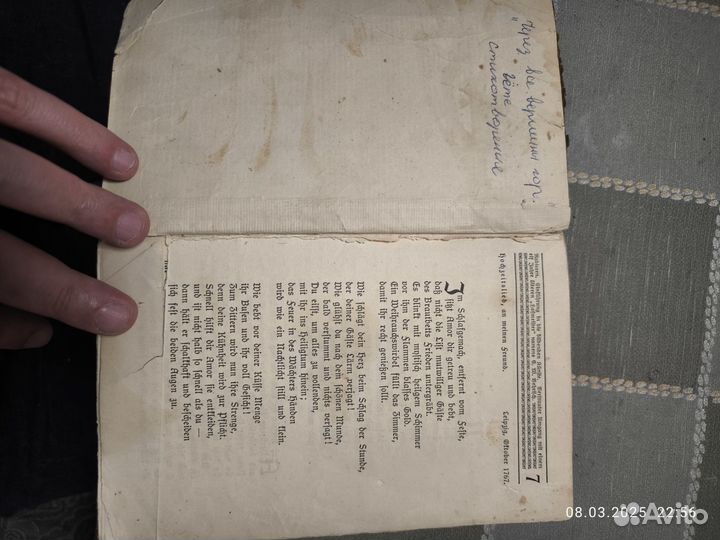 "Через все вершины гор."
Гёте
стихотворение
Einführung in die bildenden Künste. Vertrauter Umgang mit einem
elf Jahre älteren
7
Hochzeitslied, an meinen Freund.
Leipzig, Oktober 1767.
Im Schlafgemach, entfernt vom Feste,
sitzt Amor dir getreu und bebt,
daß nicht die List mutwilliger Gäste
des Brautbetts Frieden untergräbt.
Es blinkt mit mystisch heilgem Schimmer
vor ihm der Flammen blasses Gold.
Ein Weihrauchswirbel füllt das Zimmer,
damit ihr recht genießen sollt.
Wie schlägt dein Herz beim Schlag der Stunde,
der deiner Gäste Lärm verjagt!
Wie glühst du nach dem schönen Munde,
der bald verstummt und nichts versagt!
Du eilst, um alles zu vollenden,
mit ihr ins Heiligtum hinein;
das Feuer in des Wächters Händen
wird wie ein Nachtlicht still und klein.
Wie bebt vor deiner Küsse Menge
ihr Busen und ihr voll Gesicht!
Zum Zittern wird nun ihre Strenge,
denn deine Kühnheit wird zur Pflicht.
Schnell hilft dir Amor sie entkleiden,
und ist nicht halb so schnell als du —
dann hält er schalkhaft und bescheiden
sich fest die beiden Augen zu.
08.03.2025 22:56
Avito